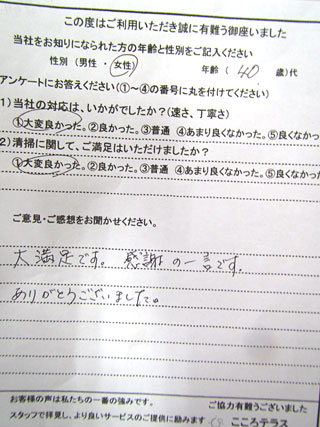 この度はご利用いただき誠に有難う御座いました
当社をお知りになられた方の年齢と性別をご記入ください
性別 (男性 ・ 女性) 年齢 ( 40 歳)代
アンケートにお答えください(①~④の番号に丸を付けてください)
1)当社の対応は、いかがでしたか?(速さ、丁寧さ)
①大変良かった。②良かった。③普通 ④あまり良くなかった。⑤良くなかっ
2)清掃に関して、ご満足はいただけましたか?
①大変良かった。②良かった。③普通 ④あまり良くなかった。⑤良くなかった
ご意見・ご感想をお聞かせください。
大満足です。 感謝の一言です。
ありがとうございました。
お客様の声は私たちの一番の強みです。 ご協力有難うございました
スタッフで拝見し、より良いサービスのご提供に励みます こころテラス